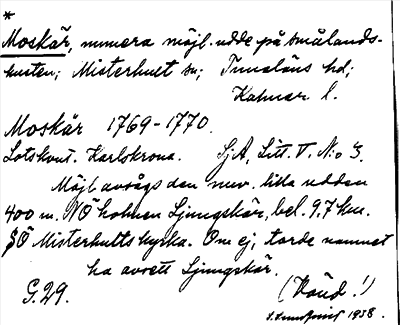 *
Moskär, numera möjl. udde på Smålands-
kusten; Misterhult sn; Tunaläns hd;
Kalmar l.
Moskär 1769-1770.
Lotskont. Karlskrona. SjA, Litt. V. N:o 3.
Möjl. avsågs den nuv. lilla udden
400 m. NÖ holmen Ljungskär, bel. 9,7 km.
SÖ Misterhults kyrka. Om ej, torde namnet
ha avsett Ljungskär.
G. 29. (Vänd!)
1938.